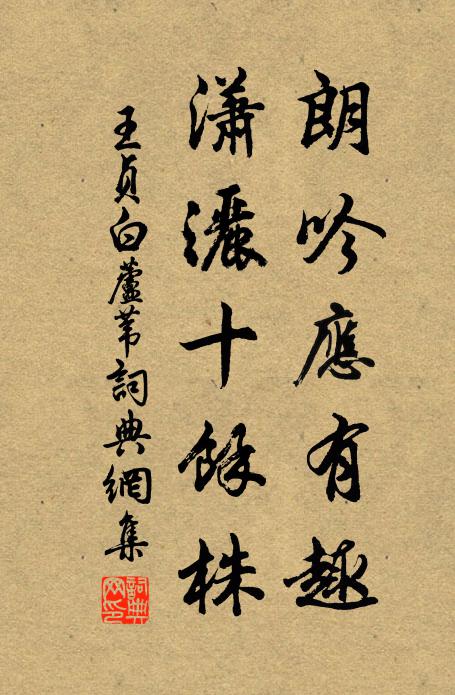 朗吟應有趣
瀟灑十餘株
王貞白蘆葦詞典網集
詞典網印